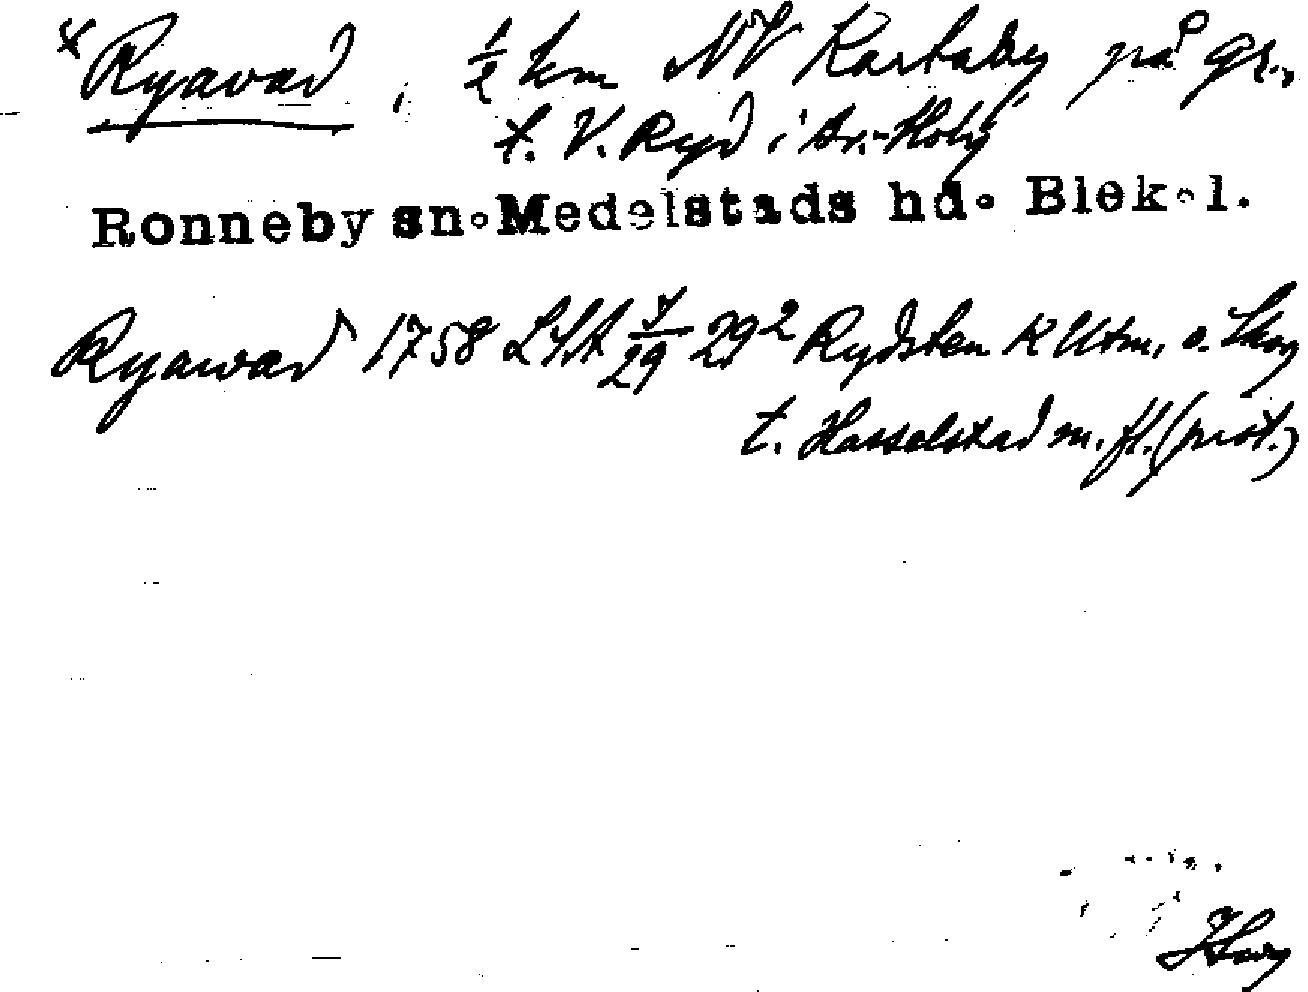 x Ryavad, 1/2 km NV Kartaby på gr.,
t. V. Ryd i Br.-Hoby
Ronneby sn. Medelstads hd. Blek. l.
Ryawad 1758 LSA 7/29 29² Rydsten K Utm. o. Skog
t. Hasselstad m. fl. (prot.)